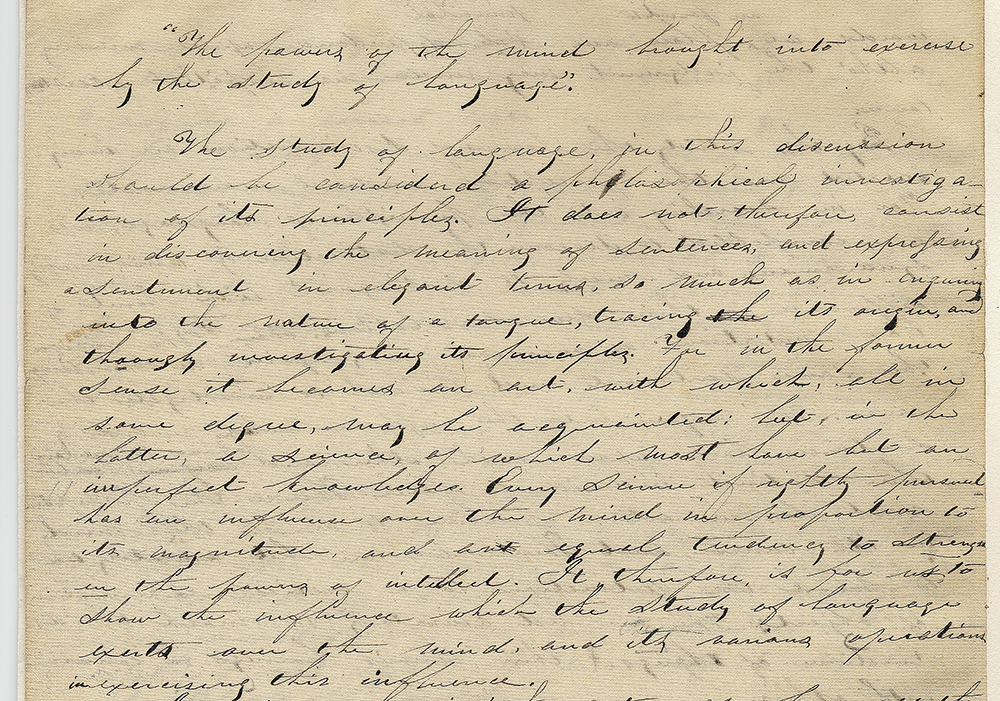 "The powers of the mind brought into exercise
by the study of language".
The study of language, in this discussion
should be considerd a philosophical investiga-
tion of its principles. It does not, therefore, consist
in discovering the meaning of sentences, and expressing
a sentiment in elegant terms, so much as in inquiring
into the nature of a tongue, tracing the its origin, and
thoroughly investigating its principles. For in the former
sense it becomes an art, with which, all in
some degree, may be acquainted; but, in the
latter, a science, of which most have but an
imperfect knowledge. Every science if rightly pursued
has an influence over the mind in proportion to
its magnitude, and an equal tendency to strength
en the powers of intellect. It, therefore, is for us to
show the influence which the study of language
exerts over the mind, and its various operations
in exercising this influence.